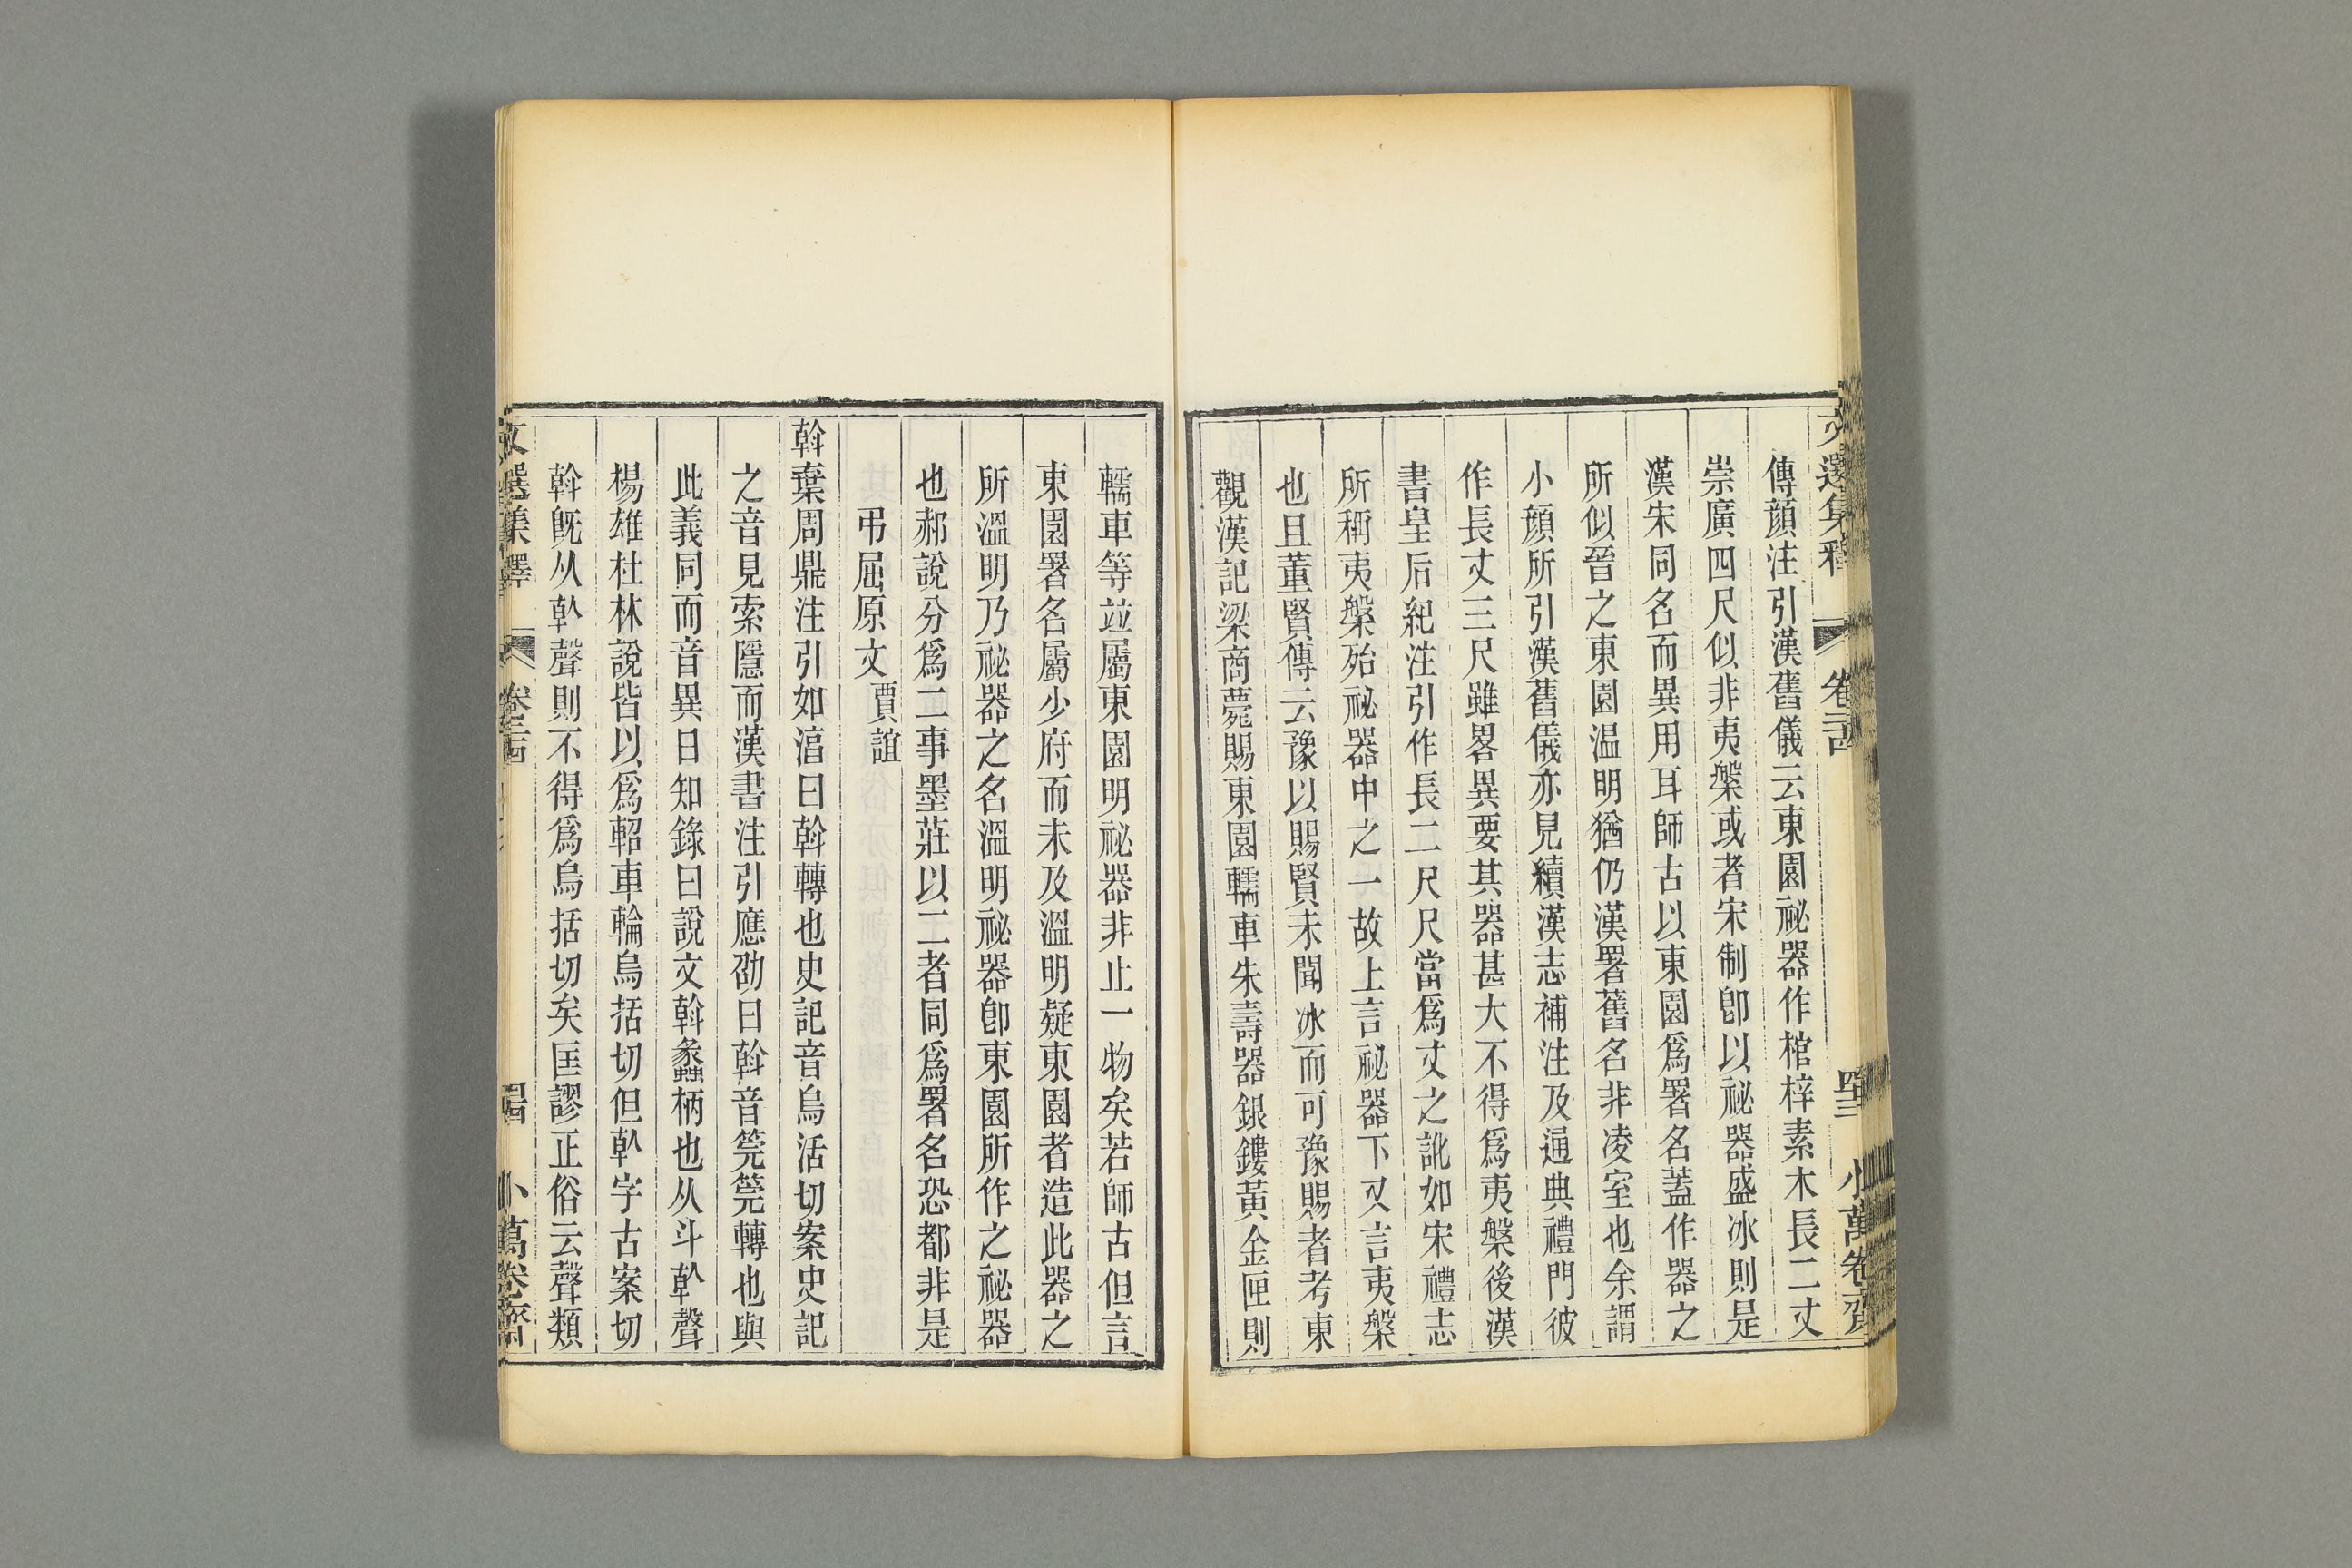 文選集釋 卷二十四 小萬卷齋
傳顔注引漢舊儀云東園祕器作棺梓素木長二丈
崇廣四尺似非夷槃或者宋制卽以祕器盛冰則是
漢宋同名而異用耳師古以東園爲署名蓋作器之
所似晉之東園温明猶仍漢署舊名非凌室也余謂
小顔所引漢舊儀亦見續漢志補注及通典禮門彼
作長丈三尺雖畧異要其器甚大不得爲夷槃後漢
書皇后紀注引作長二尺尺當爲丈之訛如宋禮志
所稱夷槃殆祕器中之一故上言祕器下又言夷槃
也且董賢傳云豫以賜賢未聞冰而可豫賜者考東
觀漢記梁商薨賜東園轜車朱壽器銀鏤黃金匣則
轜車等並屬東園明祕器非止一物矣若師古但言
東園署名屬少府而未及溫明疑東園者造此器之
所溫明乃祕器之名溫明祕器卽東園所作之祕器
也郝說分爲二事墨莊以二者同爲署名恐都非是
弔屈原文 賈誼
斡棄周鼎注引如湻曰斡轉也史記音烏活切案史記
之音見索隱而漢書注引應劭曰斡音筦筦轉也與
此義同而音異日知錄曰說文斡蠡柄也从斗倝聲
楊雄杜林說皆以爲軺車輪烏括切但倝字古案切
斡旣从倝聲則不得爲烏括切矣匡謬正俗云聲類
文選集釋 卷二十四 小萬卷齋